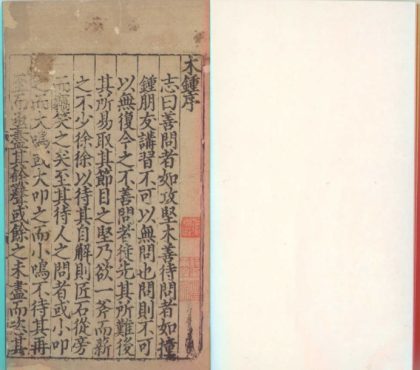 木鍾序
志曰善問者如攻堅木善待問者如撞
鍾朋友講習不可以無問也問則不可
以無復今之不善問者徒先其所難後
其所易取其節目之堅乃欲一斧而薪
之不少徐徐以待其自解則匠石從旁
而竊笑之矣至其待人之問者或小叩
之而大鳴或大叩之而小鳴不待其再
至而亟盡其餘聲或餘之未盡而恣其